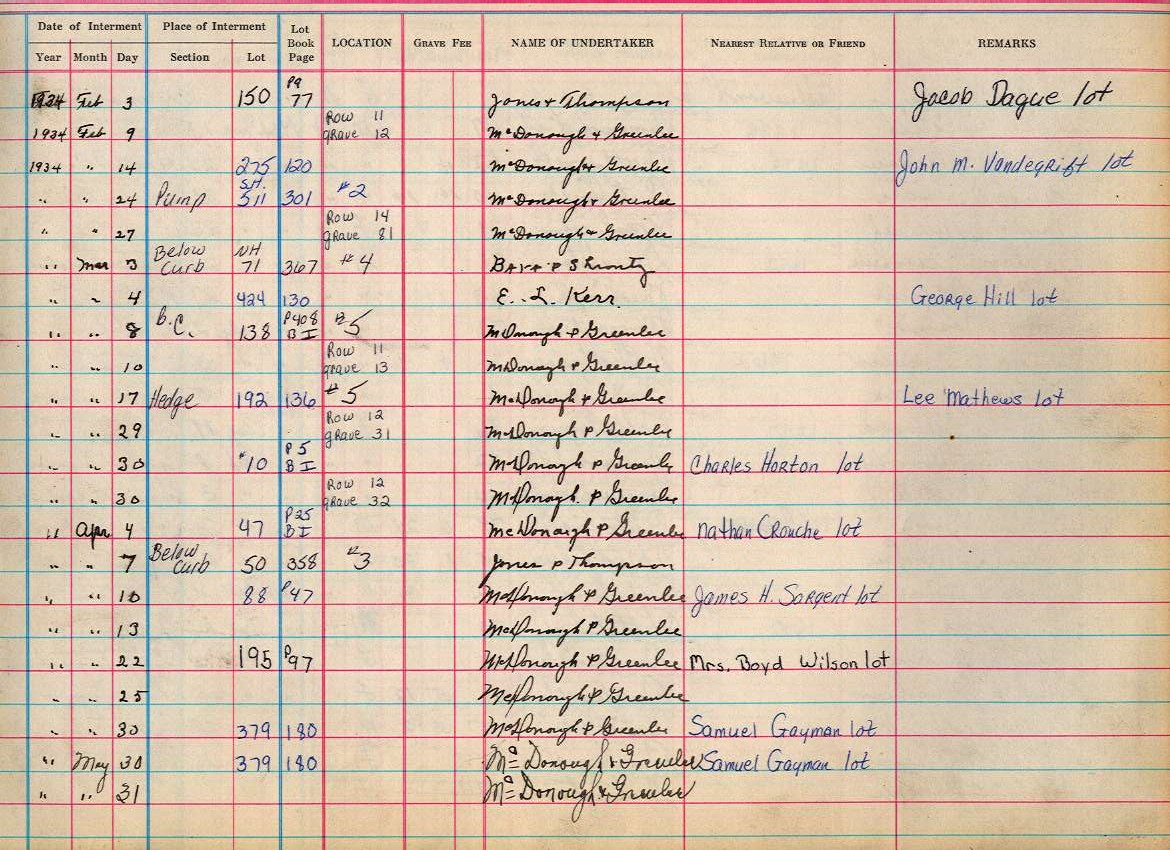 Date of Interment Place of Interment Lot Book Page LOCATION GRAVE FEE NAME OF UNDERTAKER NEAREST RELATIVE OR FRIEND REMARKS
Year Month Day Section Lot
1934 Feb 3 150 Pg 77 Jones & Thompson Jacob Dague lot
1934 Feb 9 Row 11 grave 12 McDonough & Greenlee
1934 " 14 275 120 McDonough & Greenlee John M. Vandegrift lot
" " 24 Pump S.H. 511 301 #2 McDonough & Greenlee
" " 27 Row 14 grave 81 McDonough & Greenlee
" Mar 3 Below Curb NH 71 367 #4
" " 4 424 130 E. L. Kerr. George Hill lot
" " 8 B.C. 138 P408 B I #5 McDonough & Greenlee
" " 10 Row 11 grave 13 McDonough & Greenlee
" " 17 Hedge 192 136 #5 McDonough & Greenlee Lee Mathews lot
" " 29 Row 12 grave 31 McDonough & Greenlee
" " 30 #10 P5 B I McDonough & Greenlee Charles Horton lot
" " 30 Row 12 grave 32 McDonough & Greenlee
" Apr 4 47 P25 B I McDonough & Greenlee Nathan Crouche lot
" " 7 Below Curb 50 358 #3 Jones & Thompson
" " 10 88 P47 McDonough & Greenlee James H. Sargent lot
" " 13 McDonough & Greenlee
" " 22 195 P97 McDonough & Greenlee Mrs. Boyd Wilson lot
" " 25 McDonough & Greenlee
" " 30 379 180 McDonough & Greenlee Samuel Gayman lot
" May 30 379 180 McDonough & Greenlee Samuel Gayman lot
" " 31 McDonough & Greenlee